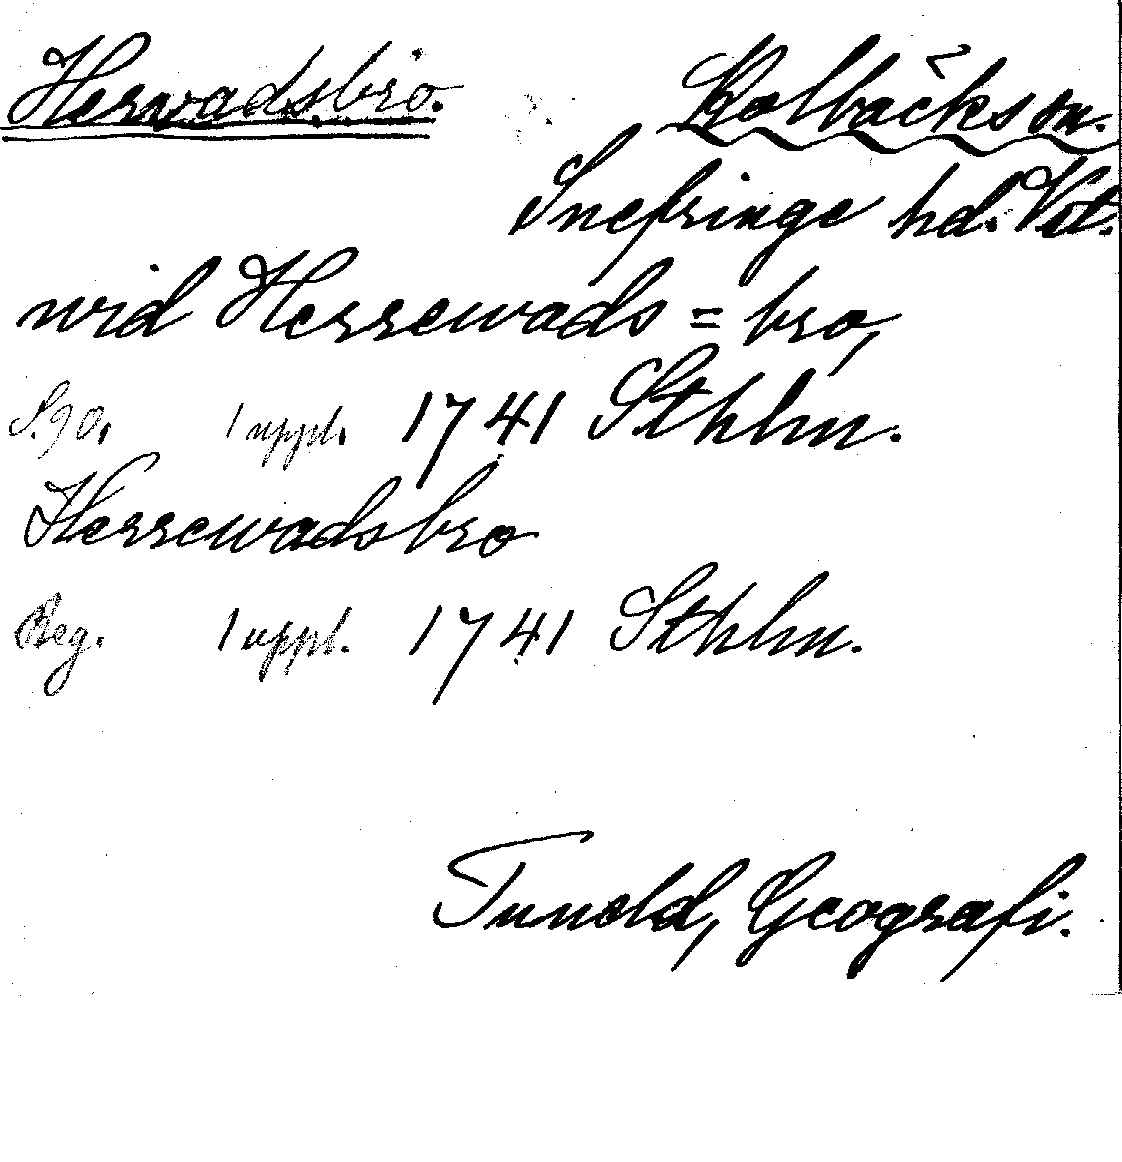 Herwadsbro. Kolbäcks sn.
Snefringe hd. Vstl.
wid Herrewads = bro,
S. 90. 1 uppl. 1741 Sthlm.
Herrewadsbro
Reg. 1 uppl. 1741 Sthlm.
Tuneld, Geografi.